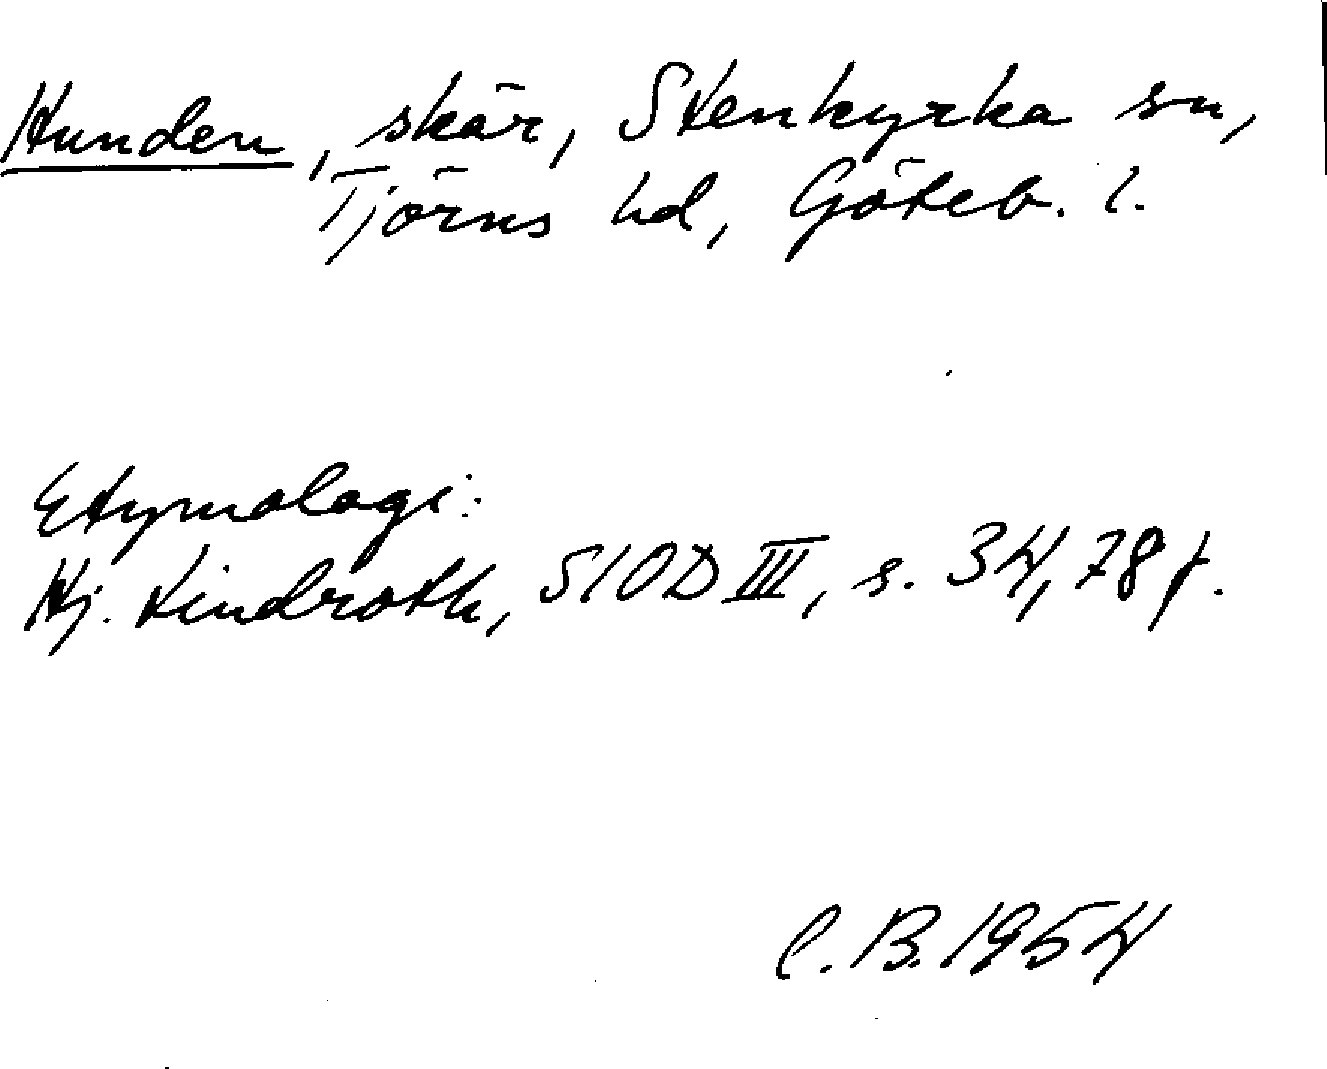 Hunden, skär, Stenkyrka sn,
Tjörns hd, Göteb. l.
Etymologi:
Hj. Lindroth, SIOD III, s. 34, 78 f.
C.B. 1954